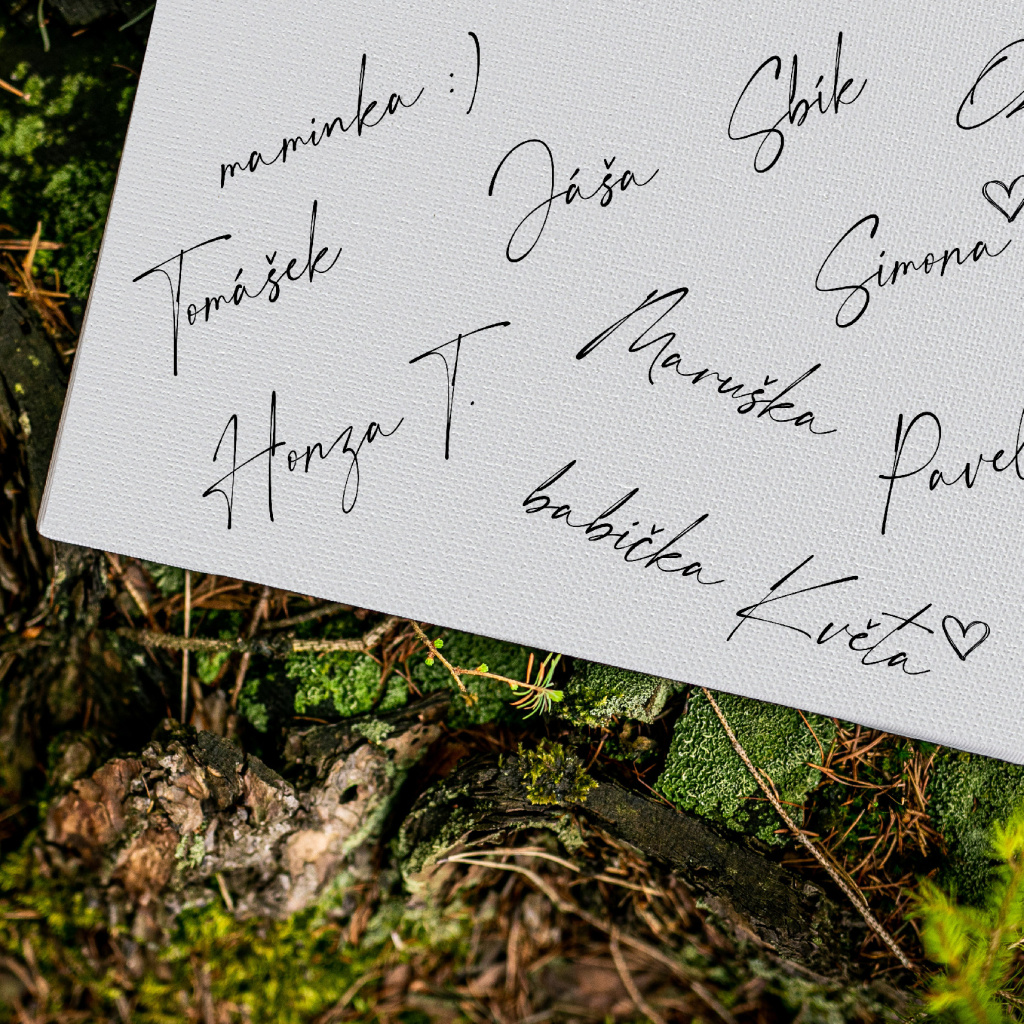 maminka :)
Sbík
Jáša
Tomášek
Simona
Maruška
Honza T.
Pavel
babička Květa